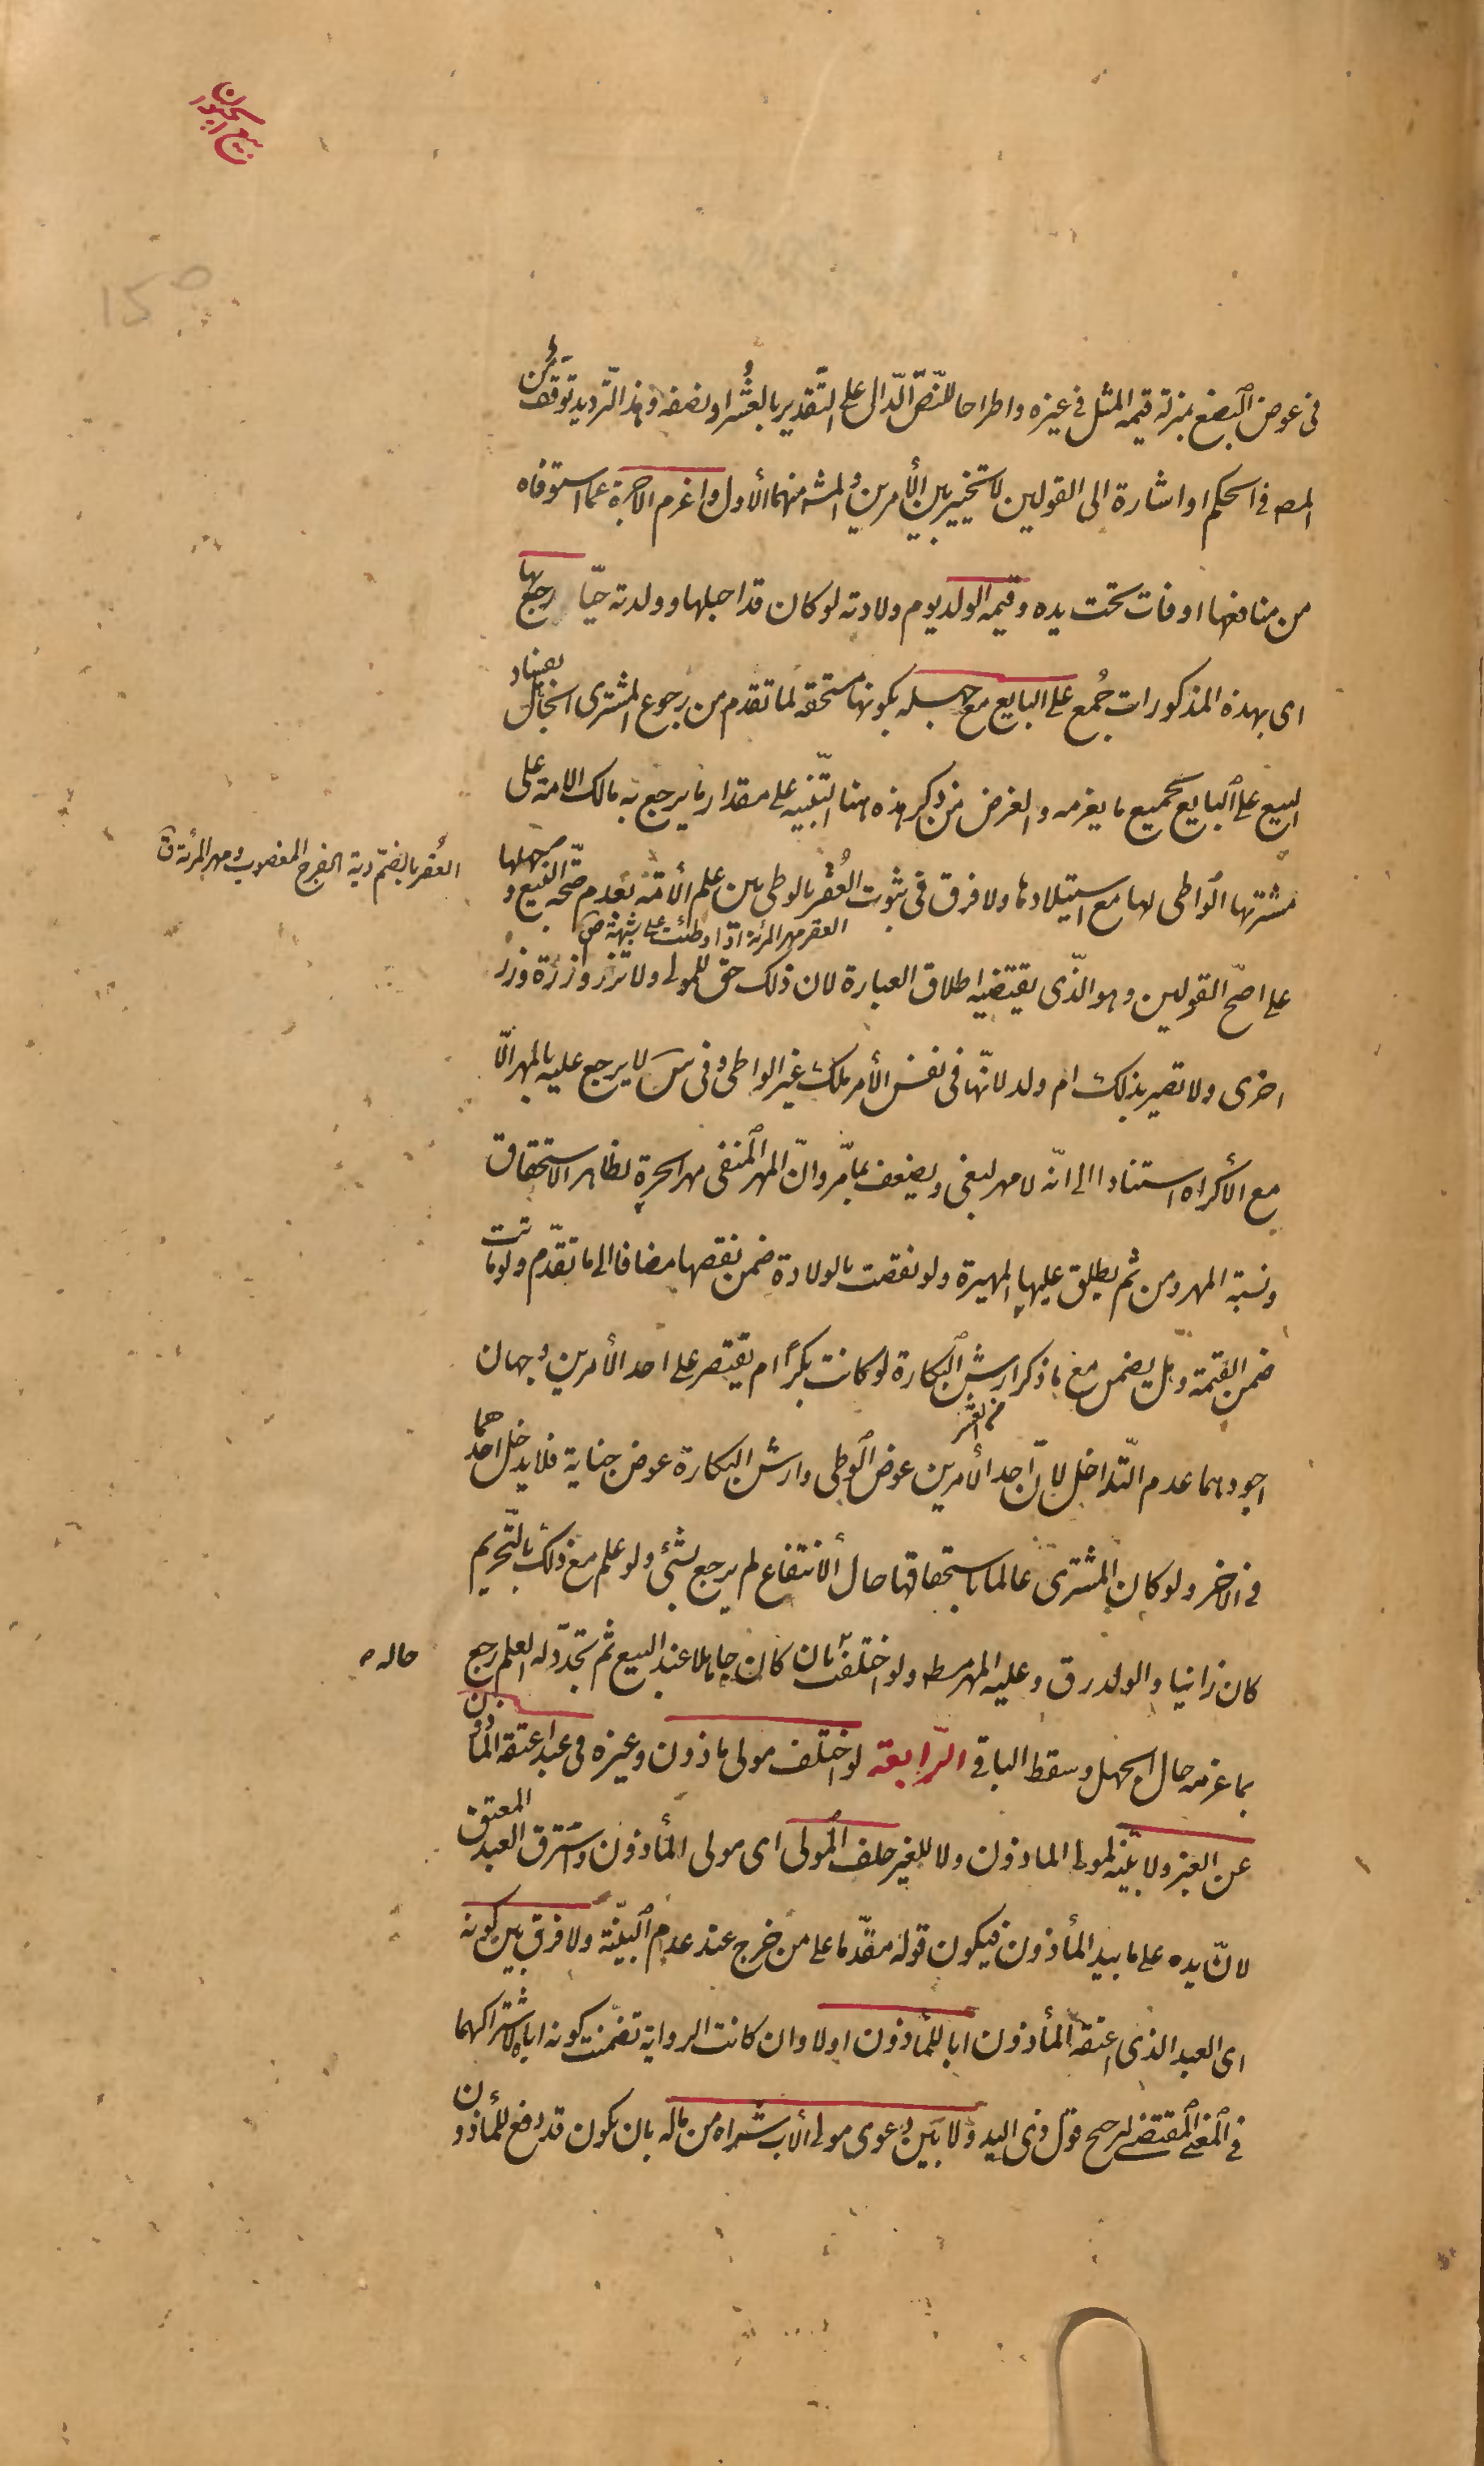 بيع الحيوان
في عوض البضع بمنزلة قيمه المثل في غيره واطراحا للنصّ الدّال على التّقدير بالعُشر او نصفه وهذا التّرديد توقف من
المص في الحكم او اشارة الى القولين لا تخيير بين الأمرين والمشه منهما الأول واغرم الاجرة عما استوفاه
من منافعها اوفات تحت يده وقيمه الولد يوم ولادته لو كان قد احبلها وولدته حيّا رجع بها
اى بهذه المذكورات جُمع على البايع مع جهله بكونها مستحقه لما تقدم من رجوع المشترى الجاهل بفساد
البيع على البايع بجميع ما يغرمه والغرض من ذكر هذه هنا التّنبيه على مقدار ما يرجع به مالك الامة على
مشتريها الواطى لها مع استيلادها ولا فرق في ثبوت العُقْر بالوطى بين علم الأمة بعدم صحّة البيع وجهلها
العُقر بالضمّ دية الفرج المغصوب ومهر المرئة ق
العقر مهر المرئة اذا وطئت على شبهة ص
على اصحّ القولين وهو الّذى يقتضيه اطلاق العبارة لان ذلك حق للمولى ولا تزر وازرة وزر
اخرى ولا تصير بذلك ام ولد لانّها في نفس الأمر ملك غير الواطى وفى س لا يرجع عليه بالمهر الّا
مع الأكراه استنادا الى انّه لا مهر لبغى ويضعف بما مّر وانّ المهر المنفى مهر الحرة بظاهر الاستحقاق
ونسبة المهر ومن ثم يطلق عليها المهيرة ولو نقصت بالولادة ضمن نقصها مضافا الى ما تقدّم ولو ماتت
ضمن القيمة وهل يضمن مع ما ذكر ارش البكارة لو كانت بكراً ام يقتصر على احد الأمرين وجهان
اجودهما عدم التّداخل لانّ احد الأمرين عوض الوطى وارش البكارة عوض جناية فلا يدخل احدهما
من العشر
في الآخر ولو كان المشترى عالما باستحقاقها حال ألانتفاع لم يرجع بشئ ولو علم مع ذلك بالتّحريم
كان زانيا والولد رق وعليه المهر مط ولو اختلفت حاله بان كان جاهلا عند البيع ثم تجدّد له العلم رجع
بما غرمه حال الجهل وسقط الباقى الرّابعة لو اختلف مولى ماذون وغيره فى عبد اعتقه المأذون
عن الغير ولا بيّنة لمولى الماذون ولا للغير حلف المولى اى مولى المأذون واسترق العبد المعتق
لانّ يده على ما بيد المأذون فيكون قوله مقدّما على من خرج عند عدم البيّنة ولا فرق بين كونه
اى العبد الذى اعتقه المأذون ابا للمأذون اولا وان كانت الرواية تضمّنت كونه اباه لاشتراكهما
فى المعنى المقتضى لترجيح قول ذى اليد ولا بَين دعوى مولى ألاب شراه من ماله بان يكون قد دفع للمأذون